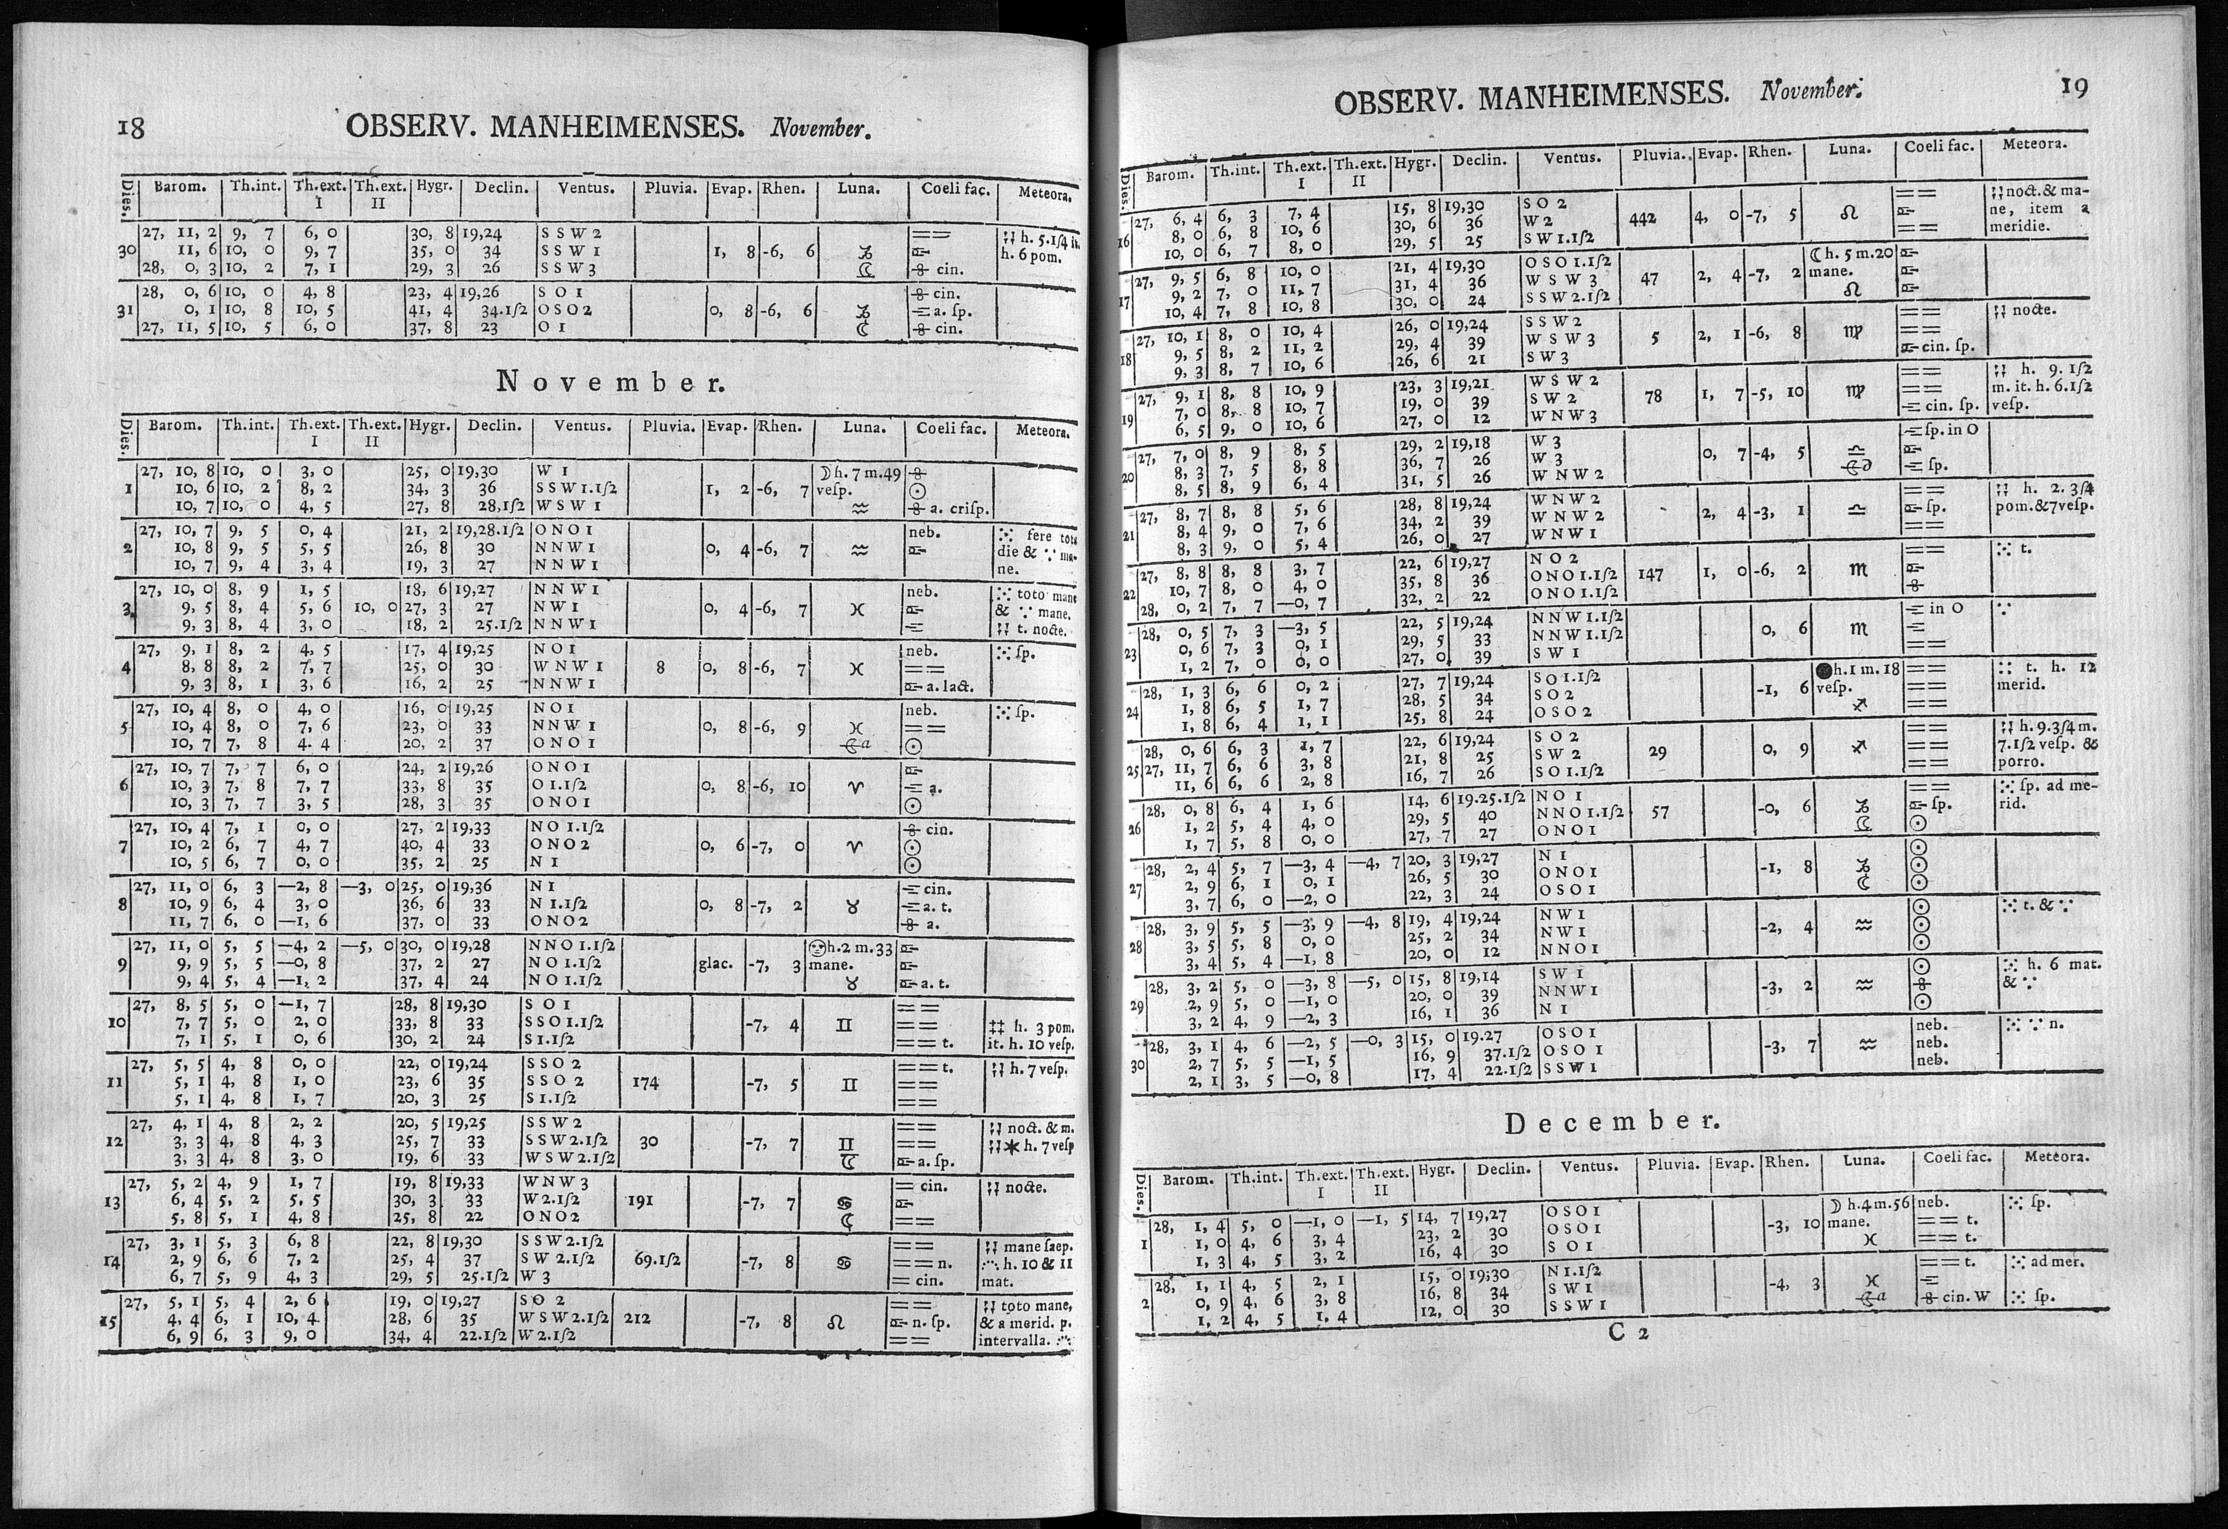 18 OBSERV. MANHEIMENSES. November.
Dies. Barom. Th.int. Th.ext. I Th.ext. II Hygr. Declin. Ventus. Pluvia. Evap. Rhen. Luna. Coeli fac. Meteora.
27, 11, 2 9, 7 6, 0 30, 8 19,24 S S W 2
30 11, 6 10, 0 9, 7 35, 0 34 S S W 1 1, 8 -6, 6 ♑ h. 5.1/2 it.
28, 0, 3 10, 2 7, 1 29, 3 26 S S W 3 ☾ cin. h. 6 pom.
28, 0, 6 10, 0 4, 8 23, 4 19,26 S O 1 cin.
31 0, 1 10, 8 10, 5 41, 4 34.1ſ2 O S O 2 0, 8 -6, 6 ♑ a. ſp.
27, 11, 5 10, 5 6, 0 37, 8 23 O 1 ☾ cin.
November.
Dies. Barom. Th.int. Th.ext. I Th.ext. II Hygr. Declin. Ventus. Pluvia. Evap. Rhen. Luna. Coeli fac. Meteora.
27, 10, 8 10, 0 3, 0 25, 0 19,30 W 1 ☽ h. 7 m.49
1 10, 6 10, 2 8, 2 34, 3 36 S S W 1.1ſ2 1, 2 -6, 7 veſp. ☉
10, 7 10, 0 4, 5 27, 8 28,1ſ2 W S W 1 ♒ a. criſp.
27, 10, 7 9, 5 0, 4 21, 2 19,28.1ſ2 O N O 1 neb. fere tota
2 10, 8 9, 5 5, 5 26, 8 30 N N W 1 0, 4 -6, 7 ♒ die & ma-
10, 7 9, 4 3, 4 19, 3 27 N N W 1 ne.
27, 10, 0 8, 9 1, 5 18, 6 19,27 N N W 1 neb. toto mane
3 9, 5 8, 4 5, 6 10, 0 27, 3 27 N W 1 0, 4 -6, 7 ♓ & mane.
9, 3 8, 4 3, 0 18, 2 25.1ſ2 N N W 1 t. nocte.
27, 9, 1 8, 2 4, 5 17, 4 19,25 N O 1 neb. ſp.
4 8, 8 8, 2 7, 7 25, 0 30 W N W 1 8 0, 8 -6, 7 ♓ ==
9, 3 8, 1 3, 6 16, 2 25 N N W 1 a. lact.
27, 10, 4 8, 0 4, 0 16, 0 19,25 N O 1 neb. ſp.
5 10, 4 8, 0 7, 6 23, 0 33 N N W 1 0, 8 -6, 9 ♓ ==
10, 7 7, 8 4. 4 20, 2 37 O N O 1 a ☉
27, 10, 7 7, 7 6, 0 24, 2 19,26 O N O 1
6 10, 3 7, 8 7, 7 33, 8 35 O 1.1ſ2 0, 8 -6, 10 ♈ a.
10, 3 7, 7 3, 5 28, 3 35 O N O 1 ☉
27, 10, 4 7, 1 0, 0 27, 2 19,33 N O 1.1ſ2 cin.
7 10, 2 6, 7 4, 7 40, 4 33 O N O 2 0, 6 -7, 0 ♈ ☉
10, 5 6, 7 0, 0 35, 2 25 N 1 ☉
27, 11, 0 6, 3 —2, 8 —3, 0 25, 0 19,36 N 1 cin.
8 10, 9 6, 4 3, 0 36, 6 33 N 1.1ſ2 0, 8 -7, 2 ♉ a. t.
11, 7 6, 0 —1, 6 37, 0 33 O N O 2 a.
27, 11, 0 5, 5 —4, 2 —5, 0 30, 0 19,28 N N O 1.1ſ2 h.2 m.33
9 9, 9 5, 5 —0, 8 37, 2 27 N O 1.1ſ2 glac. -7, 3 mane.
9, 4 5, 4 —1, 2 37, 4 24 N O 1.1ſ2 ♉ a. t.
27, 8, 5 5, 0 —1, 7 28, 8 19,30 S O 1 ==
10 7, 7 5, 0 2, 0 33, 8 33 S S O 1.1ſ2 -7, 4 ♊ == h. 3 pom.
7, 1 5, 1 0, 6 30, 2 24 S 1.1ſ2 == t. it. h. 10 veſp.
27, 5, 5 4, 8 0, 0 22, 0 19,24 S S O 2 == t. h. 7 veſp.
11 5, 1 4, 8 1, 0 23, 6 35 S S O 2 174 -7, 5 ♊ ==
5, 1 4, 8 1, 7 20, 3 25 S 1.1ſ2 ==
27, 4, 1 4, 8 2, 2 20, 5 19,25 S S W 2 == noct. & m.
12 3, 3 4, 8 4, 3 25, 7 33 S S W 2.1ſ2 30 -7, 7 ♊ == h. 7 veſp
3, 3 4, 8 3, 0 19, 6 33 W S W 2.1ſ2 a. ſp.
27, 5, 2 4, 9 1, 7 19, 8 19,33 W N W 3 = cin. nocte.
13 6, 4 5, 2 5, 5 30, 3 33 W 2.1ſ2 191 -7, 7 ♋
5, 8 5, 1 4, 8 25, 8 22 O N O 2 ☾ ==
27, 3, 1 5, 3 6, 8 22, 8 19,30 S S W 2.1ſ2 == mane ſaep.
14 2, 9 6, 6 7, 2 25, 4 37 S W 2.1ſ2 69.1ſ2 -7, 8 ♋ == n. h. 10 & 11
6, 7 5, 9 4, 3 29, 5 25.1ſ2 W 3 = cin. mat.
27, 5, 1 5, 4 2, 6 19, 0 19,27 S O 2 == toto mane,
15 4, 4 6, 1 10, 4 28, 6 35 W S W 2.1ſ2 212 -7, 8 ♌ n. ſp. & a merid. p.
6, 9 6, 3 9, 0 34, 4 22.1ſ2 W 2.1ſ2 == intervalla.
OBSERV. MANHEIMENSES. November. 19
Dies. Barom. Th.int. Th.ext. I Th.ext. II Hygr. Declin. Ventus. Pluvia. Evap. Rhen. Luna. Coeli fac. Meteora.
27, 6, 4 6, 3 7, 4 15, 8 19,30 S O 2 == noct. & ma-
16 8, 0 6, 8 10, 6 30, 6 36 W 2 442 4, 0 -7, 5 ♌ ne, item a
10, 0 6, 7 8, 0 29, 5 25 S W 1.1ſ2 == meridie.
27, 9, 5 6, 8 10, 0 21, 4 19,30 O S O 1.1ſ2 ☾ h. 5 m.20
17 9, 2 7, 0 11, 7 31, 4 36 W S W 3 47 2, 4 -7, 2 mane.
10, 4 7, 8 10, 8 30, 0 24 S S W 2.1ſ2 ♌
27, 10, 1 8, 0 10, 4 26, 0 19,24 S S W 2 == nocte.
18 9, 5 8, 2 11, 2 29, 4 39 W S W 3 5 2, 1 -6, 8 ♍ ==
9, 3 8, 7 10, 6 26, 6 21 S W 3 cin. ſp.
27, 9, 1 8, 8 10, 9 23, 3 19,21 W S W 2 == h. 9. 1ſ2
19 7, 0 8, 8 10, 7 19, 0 39 S W 2 78 1, 7 -5, 10 ♍ == m. it. h. 6.1ſ2
6, 5 9, 0 10, 6 27, 0 12 W N W 3 cin. ſp. veſp.
27, 7, 0 8, 9 8, 5 29, 2 19,18 W 3 ſp. in O
20 8, 3 7, 5 8, 8 36, 7 26 W 3 0, 7 -4, 5 ♎
8, 5 8, 9 6, 4 31, 5 26 W N W 2 ſp.
27, 8, 7 8, 8 5, 6 28, 8 19,24 W N W 2 == h. 2. 3ſ4
21 8, 4 9, 0 7, 6 34, 2 39 W N W 2 2, 4 -3, 1 ♎ ſp. pom.&7veſp.
8, 3 9, 0 5, 4 26, 0 27 W N W 1 ==
27, 8, 8 8, 8 3, 7 22, 6 19,27 N O 2 == t.
22 10, 7 8, 0 4, 0 35, 8 36 O N O 1.1ſ2 147 1, 0 -6, 2 ♏
28, 0, 2 7, 7 —0, 7 32, 2 22 O N O 1.1ſ2
28, 0, 5 7, 3 —3, 5 22, 5 19,24 N N W 1.1ſ2 in O
23 0, 6 7, 3 0, 1 29, 5 33 N N W 1.1ſ2 0, 6 ♏
1, 2 7, 0 0, 0 27, 0 39 S W 1 ==
28, 1, 3 6, 6 0, 2 27, 7 19,24 S O 1.1ſ2 ● h.1 m. 18 == t. h. 12
24 1, 8 6, 5 1, 7 28, 5 34 S O 2 -1, 6 veſp. == merid.
1, 8 6, 4 1, 1 25, 8 24 O S O 2 ♐ ==
28, 0, 6 6, 3 1, 7 22, 6 19,24 S O 2 == h. 9.3ſ4 m.
25 27, 11, 7 6, 6 3, 8 21, 8 25 S W 2 29 0, 9 ♐ == 7.1ſ2 veſp. &
11, 6 6, 6 2, 8 16, 7 26 S O 1.1ſ2 == porro.
28, 0, 8 6, 4 1, 6 14, 6 19.25.1ſ2 N O 1 == ſp. ad me-
26 1, 2 5, 4 4, 0 29, 5 40 N N O 1.1ſ2 57 -0, 6 ♑ ſp. rid.
1, 7 5, 8 0, 0 27, 7 27 O N O 1 ☾ ☉
28, 2, 4 5, 7 —3, 4 —4, 7 20, 3 19,27 N 1 ☉
27 2, 9 6, 1 0, 1 26, 5 30 O N O 1 -1, 8 ♑ ☉
3, 7 6, 0 —2, 0 22, 3 24 O S O 1 ☾ ☉
28, 3, 9 5, 5 —3, 9 —4, 8 19, 4 19,24 N W 1 ☉ t. &
28 3, 5 5, 8 0, 0 25, 2 34 N W 1 -2, 4 ♒ ☉
3, 4 5, 4 —1, 8 20, 0 12 N N O 1 ☉
28, 3, 2 5, 0 —3, 8 —5, 0 15, 8 19,14 S W 1 ☉ h. 6 mat.
29 2, 9 5, 0 —1, 0 20, 0 39 N N W 1 -3, 2 ♒ &
3, 2 4, 9 —2, 3 16, 1 36 N 1 ☉
28, 3, 1 4, 6 —2, 5 —0, 3 15, 0 19.27 O S O 1 neb. n.
30 2, 7 5, 5 —1, 5 16, 9 37.1ſ2 O S O 1 -3, 7 ♒ neb.
2, 1 3, 5 —0, 8 17, 4 22.1ſ2 S S W 1 neb.
December.
Dies. Barom. Th.int. Th.ext. I Th.ext. II Hygr. Declin. Ventus. Pluvia. Evap. Rhen. Luna. Coeli fac. Meteora.
28, 1, 4 5, 0 —1, 0 —1, 5 14, 7 19,27 O S O 1 ☽ h.4 m.56 neb. ſp.
1 1, 0 4, 6 3, 4 23, 2 30 O S O 1 -3, 10 mane. == t.
1, 3 4, 5 3, 2 16, 4 30 S O 1 ♓ == t.
28, 1, 1 4, 5 2, 1 15, 0 19,30 N 1.1ſ2 == t. ad mer.
2 0, 9 4, 6 3, 8 16, 8 34 S W 1 -4, 3 ♓
1, 2 4, 5 1, 4 12, 0 30 S S W 1 a cin. W ſp.
C 2